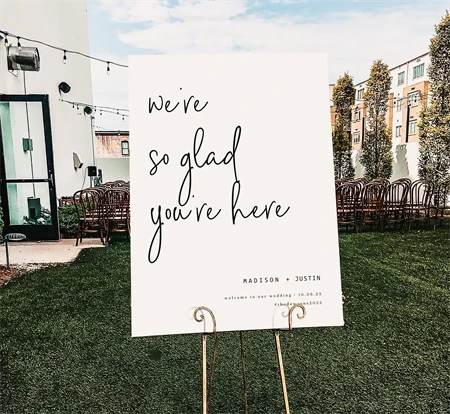 we're
so glad
you're here
MADISON + JUSTIN
welcome to our wedding | 10.09.23